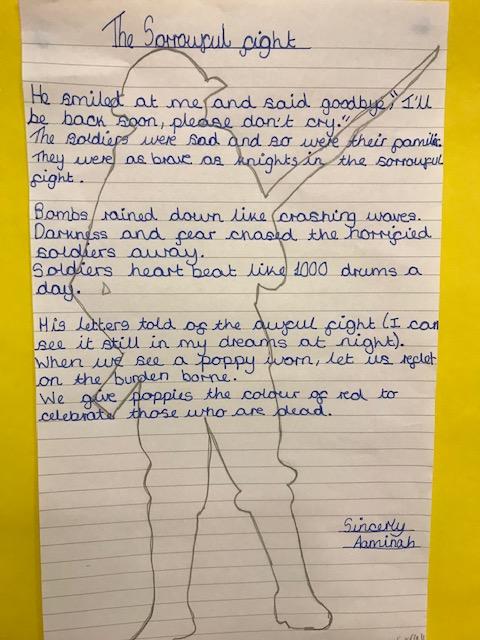 The Sorrowful fight
He smiled at me and said goodbye," I'll
be back soon, please don't cry."
The soldiers were sad and so were their familie.
They were as brave as knights in the sorrowful
fight.
Bombs rained down like crashing waves.
Darkness and fear chased the horrified
soldiers away.
Soldiers heart beat like 1000 drums a
day.
His letters told of the awful fight (I can
see it still in my dreams at night).
When we see a poppy worn, let us reflet
on the burden borne.
We give poppies the colour of red to
celebrate those who are dead.
Sincerly
Aaminah